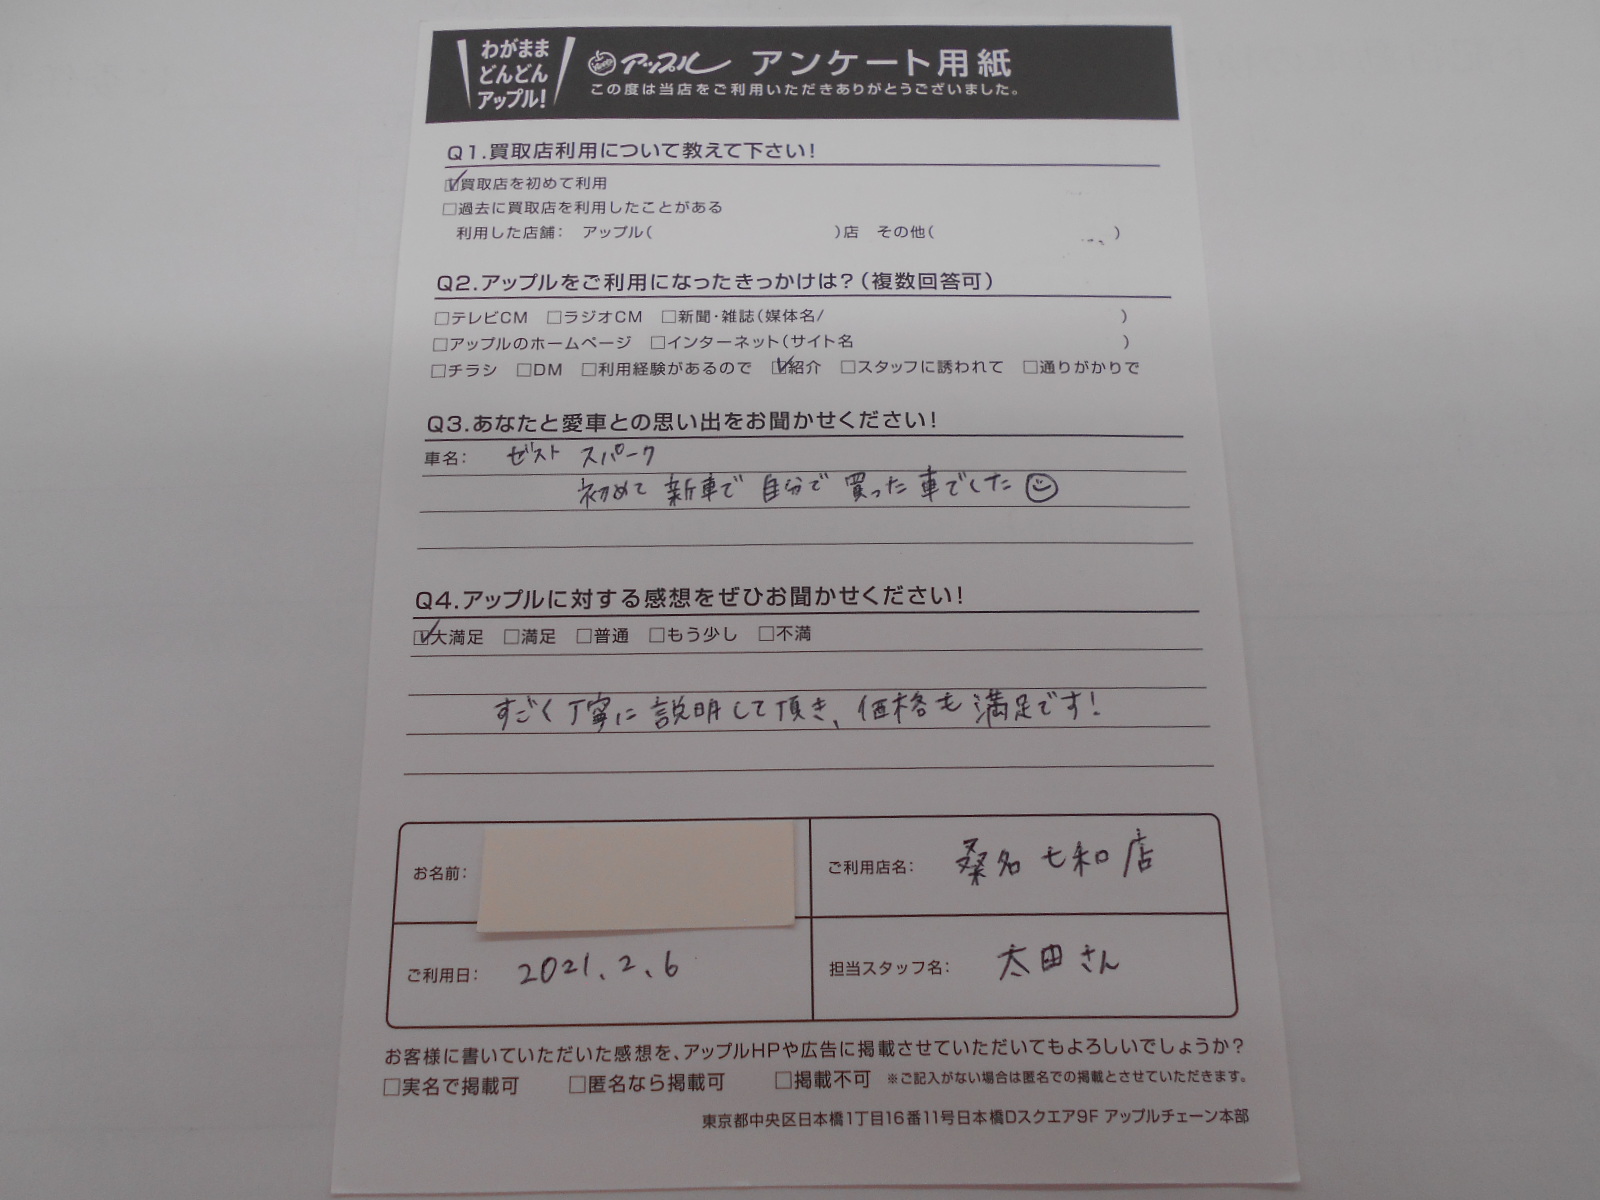 わがまま
どんどん
アップル!
アップル アンケート用紙
この度は当店をご利用いただきありがとうございました。
Q1.買取店利用について教えて下さい!
☑買取店を初めて利用
□過去に買取店を利用したことがある
利用した店舗: アップル( )店 その他( )
Q2.アップルをご利用になったきっかけは?(複数回答可)
□テレビCM □ラジオCM □新聞・雑誌(媒体名/ )
□アップルのホームページ □インターネット(サイト名 )
□チラシ □DM □利用経験があるので ☑紹介 □スタッフに誘われて □通りがかりで
Q3.あなたと愛車との思い出をお聞かせください!
車名: ゼスト スパーク
初めて 新車で 自分で 買った 車でした☺
Q4.アップルに対する感想をぜひお聞かせください!
☑大満足 □満足 □普通 □もう少し □不満
すごく丁寧に説明して頂き、価格も満足です!
お名前:
ご利用店名: 桑名七和店
ご利用日: 2021.2.6
担当スタッフ名: 太田さん
お客様に書いていただいた感想を、アップルHPや広告に掲載させていただいてもよろしいでしょうか?
□実名で掲載可 □匿名なら掲載可 □掲載不可 ※ご記入がない場合は匿名での掲載とさせていただきます。
東京都中央区日本橋1丁目16番11号日本橋Dスクエア9F アップルチェーン本部